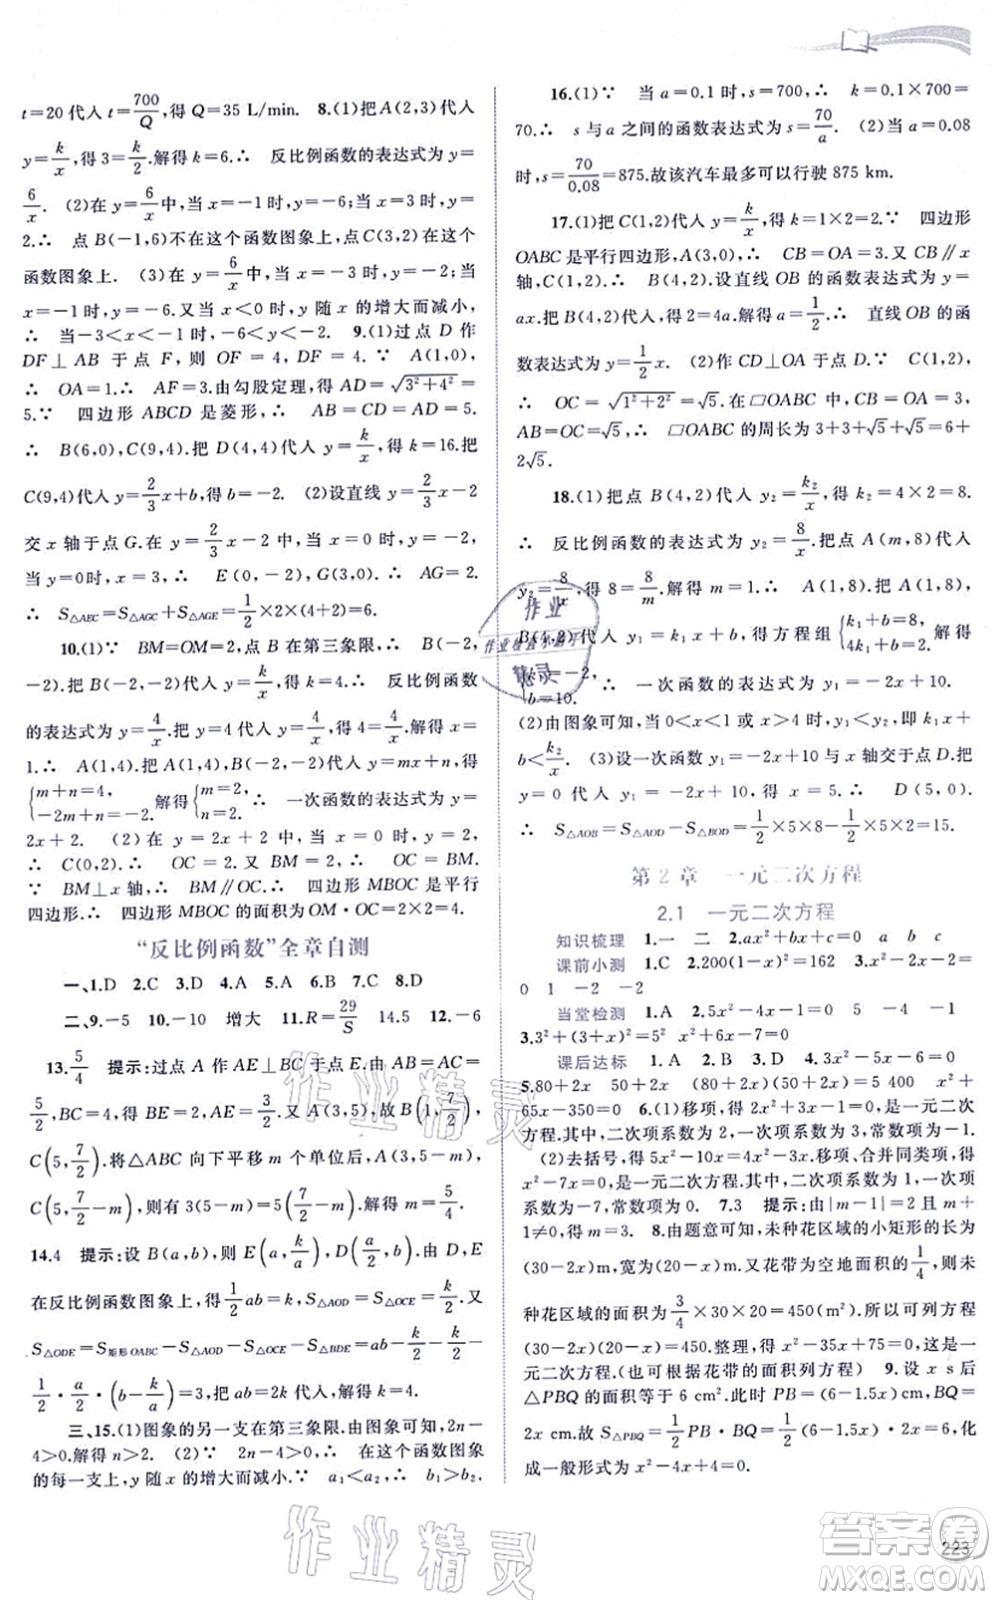 t=20代入t=700/Q,得Q=35 L/min. 8.(1)把A(2,3)代入
y=k/x,得3=k/2.解得k=6.∴ 反比例函数的表达式为y=
6/x. (2)在y=6/x中,当x=-1时,y=-6;当x=3时,y=
2.∴ 点B(-1,6)不在这个函数图象上,点C(3,2)在这个
函数图象上. (3)在y=6/x中,当x=-3时,y=-2;当x=
-1时,y=-6.又当x<0时,y随x的增大而减小,
∴ 当-3<x<-1时,-6<y<-2. 9.(1)过点D作
DF⊥AB于点F,则OF=4,DF=3.∵ A(1,0),
∴ OA=1.∴ AF=3.由勾股定理,得AD=√(3²+4²)=
5.∵ 四边形ABCD是菱形,∴ AB=CD=AD=5.
∴ B(6,0),C(9,4).把D(4,4)代入y=k/x,得k=16.把
C(9,4)代入y=2/3x+b,得b=-2. (2)设直线y=2/3x-2
交x轴于点G.在y=2/3x-2中,当y=0时,x=3,
当x=0时,y=-2,∴ E(0,-2),G(3,0).∴ AG=2.
∴ S△AEC=S△AGC+S△AGE=1/2×2×(4+2)=6.
10.(1)∵ BM=OM=2,点B在第三象限,∴ B(-2,
-2).把B(-2,-2)代入y=k/x,得k=4.∴ 反比例函数
的表达式为y=4/x.把y=4代入y=4/x,得4=4/x.解得x=
1.∴ A(1,4).把A(1,4),B(-2,-2)代入y=mx+n,得
{m+n=4, -2m+n=-2, 解得{m=2, n=2. ∴ 一次函数的表达式为y=
2x+2. (2)在y=2x+2中,当x=0时,y=2.
∴ C(0,2).∴ OC=2.又BM=2,∴ OC=BM.
∵ BM⊥x轴,∴ BM∥OC.∴ 四边形MBOC是平行
四边形.∴ 四边形MBOC的面积为OM·OC=2×2=4.
“反比例函数”全章自测
一、1.D 2.C 3.D 4.A 5.A 6.B 7.C 8.D
二、9.-5 10.-10 增大 11.R=29/S 14.5 12.-6
13.5/4 提示:过点A作AE⊥BC于点E.由AB=AC=
5/2,BC=4,得BE=2,AE=3/2.又A(3,5),故B(1,7/2),
C(5,7/2).将△ABC向下平移m个单位后,A(3,5-m),
C(5,7/2-m),所以3(5-m)=5(7/2-m).解得m=5/4.
14.4 提示:设B(a,b),则E(a,k/a),D(a/2,b/2).由D
在反比例函数图象上,得1/2a·1/2b=k,S△AOD=S△OCE=k/2.又
S△ODE=S矩形OABC-S△AOD-S△OCE-S△BDE=ab-k/2-k/2-
1/2·a/2·(b-k/a)=9,所以4k-k-k/4... 
三、15.(1)图象的另一支在第三象限.由图象可知,2n-
4>0.解得n>2. (2)∵ 2n-4>0,∴ 在这个函数图象
的每一支上,y随x的增大而减小.∵ a₁<a₂,∴ b₁>b₂.
16.(1)∵ 当a=0.1时,s=700,∴ k=0.1×700=
70.∴ s与a之间的函数表达式为s=70/a. (2)当a=0.08
时,s=70/0.08=875.故该汽车最多可以行驶875 km.
17.(1)把C(1,2)代入y=k/x,得k=1×2=2.∵ 四边形
OABC是平行四边形,A(3,0),∴ CB=OA=3.又CB∥x
轴,C(1,2),∴ B(4,2).设直线OB的函数表达式为y=
ax.把B(4,2)代入,得2=4a.解得a=1/2.∴ 直线OB的函
数表达式为y=1/2x. (2)作CD⊥OA于点D.∵ C(1,2),
∴ OC=√(1²+2²)=√5.在▱OABC中,CB=OA=3,
AB=OC=√5.∴ ▱OABC的周长为3+3+√5+√5=6+
2√5.
18.(1)把点B(4,2)代入y₂=k₂/x,得k₂=4×2=8.
∴ 反比例函数的表达式为y₂=8/x.把点A(m,8)代入
y₂=8/x,得8=8/m.解得m=1.∴ A(1,8).把A(1,8)、
B(4,2)代入y₁=k₁x+b,得方程组{k₁+b=8, 4k₁+b=2. 解得
{k₁=-2, b=10. ∴ 一次函数的表达式为y₁=-2x+10.
(2)由图象可知,当0<x<1或x>4时,y₁<y₂,即k₁x+
b<k₂/x. (3)设一次函数y₁=-2x+10与x轴交于点D.把
y=0代入y₁=-2x+10,得x=5.∴ D(5,0).
∴ S△AOB=S△AOD-S△BOD=1/2×5×8-1/2×5×2=15.
第2章 一元二次方程
2.1 一元二次方程
知识梳理 1.一 二 2.ax²+bx+c=0 a b c
课前小测 1.C 2.200(1-x)²=162 3.x²-2x-2=
0 1 -2 -2
当堂检测 1.A 2.5x²-4x-1=0 5 -4 -1
3.3²+(3+x)²=5² x²+6x-7=0
课后达标 1.A 2.B 3.D 4.3x²-5x-6=0
5.80+2x 50+2x (80+2x)(50+2x)=5 400 x²+
65x-350=0 6.(1)移项,得2x²-3x-1=0,是一元二次
方程.其中,二次项系数为2,一次项系数为-3,常数项为-1.
(2)去括号,得6x²-2x-1=5x-1.移项、合并同类项,得
6x²-7x=0,是一元二次方程.其中,二次项系数为6,一次项
系数为-7,常数项为0. 7.3 提示:由|m-1|=2且m+
1≠0,得m=3. 8.由题意可知,未种花区域的小矩形的长为
(30-2x)m,宽为(20-2x)m.又花带为空地面积的1/4,则未
种花区域的面积为3/4×30×20=450(m²).所以可列方程
(30-2x)(20-2x)=450.整理,得x²-35x+75=0,这是一
元二次方程.(也可根据花带的面积列方程) 9.设x s后
△PBQ的面积等于6 cm².此时PB=(6-1.5x)cm,BQ=
2x cm.由S△PBQ=1/2PB·BQ=1/2×(6-1.5x)·2x=6,化
成一般形式为x²-4x+4=0.
223
作业精灵
作业精灵
答案圈
MXQE.COM